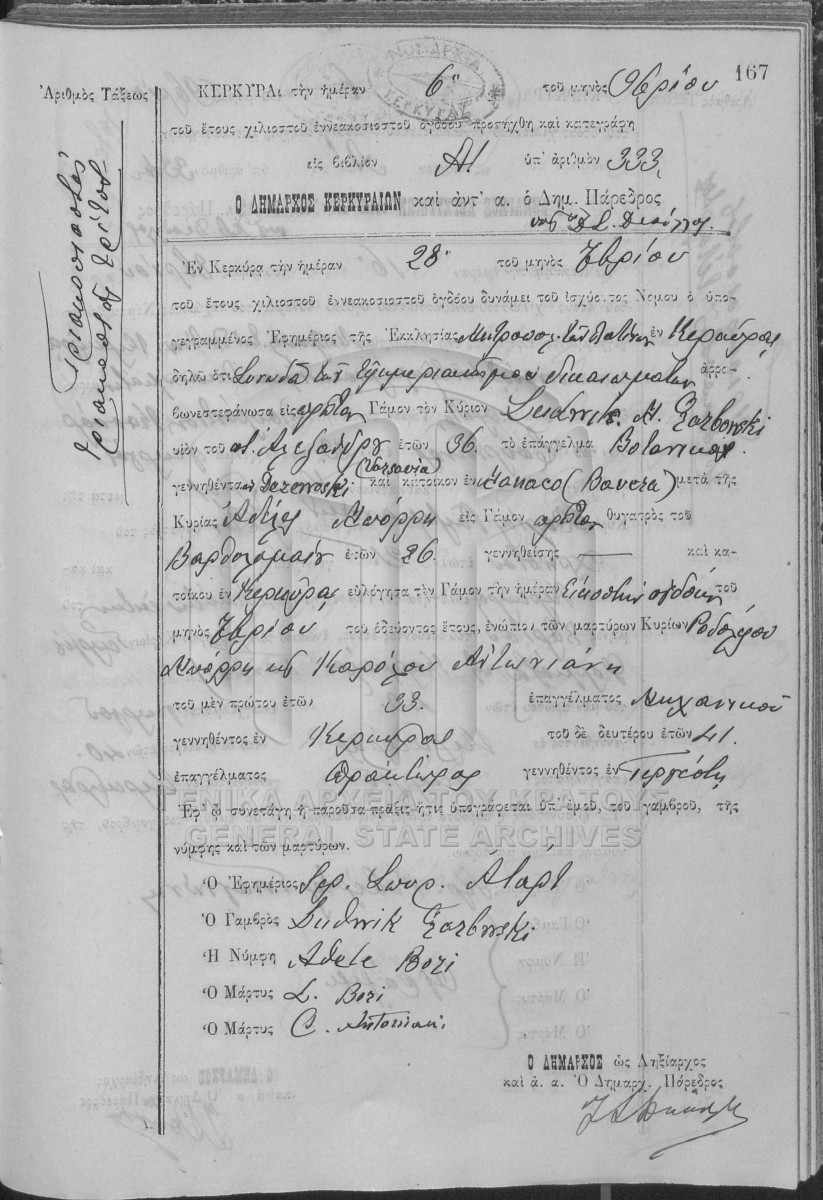 167
Ἀριθμὸς Τάξεως
Τριακοσιοστὸς
τριακοστὸς τρίτος
ΝΟΜΑΡΧΙΑ ΚΕΡΚΥΡΑΣ
ΚΕΡΚΥΡΑι τὴν ἡμέραν 6η τοῦ μηνὸς 9βρίου
τοῦ ἔτους χιλιοστοῦ ἐννεακοσιοστοῦ ὀγδόου προσήχθη καὶ κατεγράφη
εἰς βιβλίον Α1 ὑπ' ἀριθμὸν 333,
Ο ΔΗΜΑΡΧΟΣ ΚΕΡΚΥΡΑΙΩΝ καὶ ἀντ' α. ὁ Δημ. Πάρεδρος
Ἐν Κερκύρᾳ τὴν ἡμέραν 28 τοῦ μηνὸς 7βρίου
τοῦ ἔτους χιλιοστοῦ ἐννεακοσιοστοῦ ὀγδόου δυνάμει τοῦ ἰσχύοντος Νόμου ὁ ὑπο-
γεγραμμένος Ἐφημέριος τῆς Ἐκκλησίας Μητροπόλ. τῶν Λατίνων ἐν Κερκύρᾳ
δηλῶ ὅτι Συνάδᾳ τῶν Ἐφημεριακῶν μου δικαιωμάτων ἀρρα-
βωνεστεφάνωσα εἰς πρῶτον Γάμον τὸν Κύριον Ludwik M. Garbowski
υἱὸν τοῦ Ἀλεξάνδρου ἐτῶν 36. τὸ ἐπάγγελμα Βοτανικὸς
(Varsavia)
γεννηθέντα ἐν καὶ κάτοικον ἐν Monaco (Bavera) μετὰ τῆς
Κυρίας Ἀδέλης Μπόρρη εἰς Γάμον πρῶτον θυγατρὸς τοῦ
Βαρθολομαίου ἐτῶν 26. γεννηθείσης — καὶ κα-
τοίκου ἐν Κερκύρᾳ εὐλόγησα τὸν Γάμον τὴν ἡμέραν Εἰκοστὴν ὀγδόην τοῦ
μηνὸς 7βρίου τοῦ ὁδεύοντος ἔτους, ἐνώπιον τῶν μαρτύρων Κυρίων Ροδόλφου
Μπόρρη κ Καρόλου Ἀντωνιάνη
τοῦ μὲν πρώτου ἐτῶν 33. ἐπαγγέλματος Μηχανικοῦ
γεννηθέντος ἐν Κερκύρᾳ τοῦ δὲ δευτέρου ἐτῶν 41.
ἐπαγγέλματος Πράκτορος γεννηθέντος ἐν Τεργέστῃ
Ἐφ' ᾧ συνετάγη ἡ παροῦσα πρᾶξις ἥτις ὑπογράφεται ὑπ' ἐμοῦ, τοῦ γαμβροῦ, τῆς
νύμφης καὶ τῶν μαρτύρων.
ΓΕΝΙΚΑ ΑΡΧΕΙΑ ΤΟΥ ΚΡΑΤΟΥΣ
GENERAL STATE ARCHIVES
Ὁ Ἐφημέριος
Ὁ Γαμβρὸς Ludwik Garbowski
Ἡ Νύμφη Adele Bori
Ὁ Μάρτυς Bori
Ὁ Μάρτυς C. Antoniani
Ο ΔΗΜΑΡΧΟΣ ὡς Ληξίαρχος
καὶ ἀ. α. Ὁ Δημαρχ. Πάρεδρος